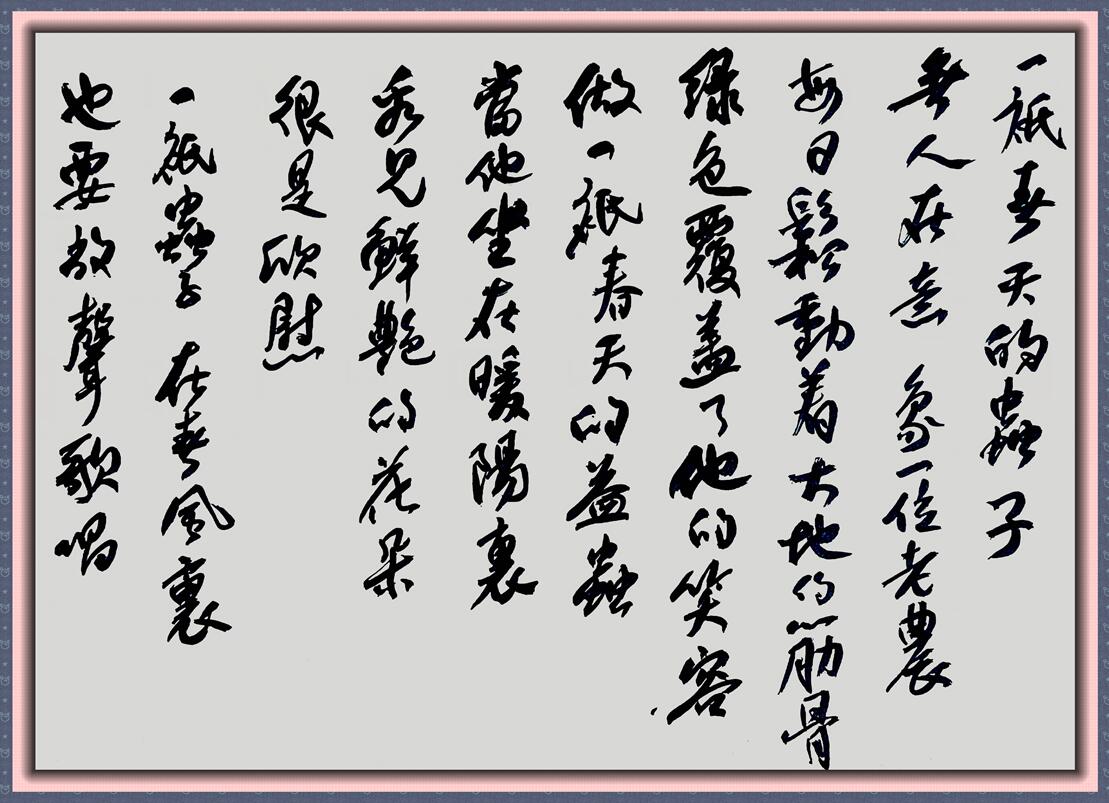 一祇春天的蟲子
無人在意 象一位老農
每日鬆動着大地的筋骨
綠色覆蓋了他的笑容
做一祇春天的益蟲
當他坐在暖陽裏
看見鮮艷的花朵
很是欣慰
一祇蟲子 在春風裏
也要放聲歌唱